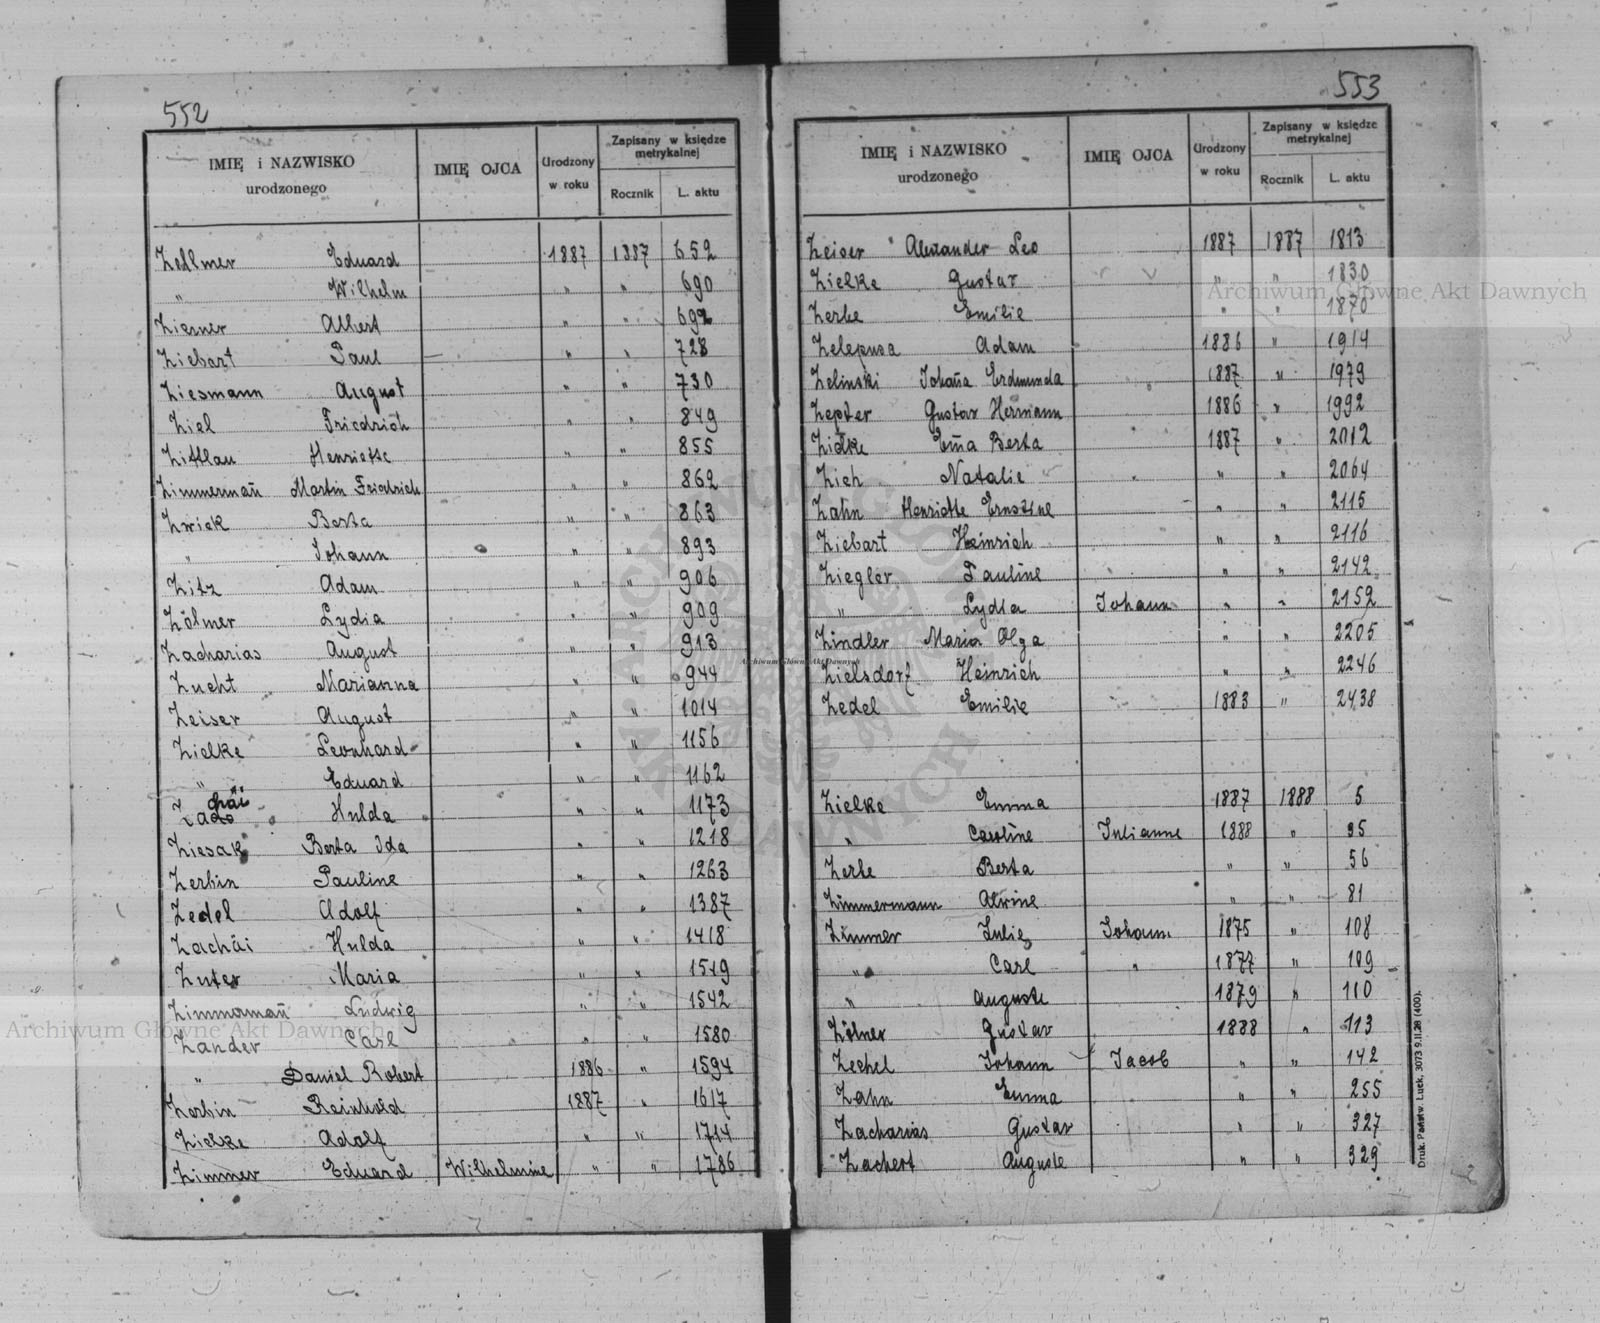 552
IMIĘ i NAZWISKO urodzonego IMIĘ OJCA Urodzony w roku Zapisany w księdze metrykalnej Rocznik L. aktu
Zellmer Eduard 1887 1887 652
" Wilhelm " " 690
Ziesner Albert " " 692
Ziebart Paul " " 728
Ziesmann August " " 730
Ziel Friedrich " " 849
Zittlau Henriette " " 855
Zimmermañ Martin Friedrich " " 862
Zwick Berta " " 863
" Johann " " 893
Zitz Adam " " 906
Zölmer Lydia " " 909
Zacharias August " " 913
Zucht Marianna " " 944
Zeiser August " " 1014
Zielke Leonhard " " 1156
" Eduard " " 1162
Hulda " " 1173
Ziesak Berta Ida " " 1218
Zerbin Pauline " " 1263
Zedel Adolf " " 1387
Zachäi Hulda " " 1418
Zuter Maria " " 1519
Zimmermañ Ludwig " " 1542
Zander Carl " " 1580
" Daniel Robert 1886 " 1594
Zerbin Reinhold 1887 " 1617
Zielke Adolf " " 1714
Zimmer Eduard Wilhelmine " " 1786
553
IMIĘ i NAZWISKO urodzonego IMIĘ OJCA Urodzony w roku Zapisany w księdze metrykalnej Rocznik L. aktu
Zeiser Alexander Leo 1887 1887 1813
Zielke Gustav " " 1830
Zerbe Emilie " " 1870
Zelepusa Adam 1886 " 1914
Zelinski Johaña Erdmunda 1887 " 1979
Zepter Gustav Hermann 1886 " 1992
Zidke Em̃a Berta 1887 " 2012
Zich Natalie " " 2064
Zahn Henriette Ernstine " " 2115
Ziebart Heinrich " " 2116
Ziegler Pauline " " 2142
" Lydia Johann " " 2152
Zindler Maria Olga " " 2205
Zielsdorf Heinrich " " 2246
Zedel Emilie 1883 " 2438
Zielke Emma 1887 1888 5
" Caroline Julianne 1888 " 35
Zerbe Berta " " 56
Zimmermann Alwine " " 81
Zimmer Julie Johann 1875 " 108
" Carl " 1877 " 109
" Auguste 1879 " 110
Zölner Gustav 1888 " 113
Zechel Johann Jacob " " 142
Zahn Emma " " 255
Zacharias Gustav " " 327
Zachert Auguste " " 329
Druk. Państw. Łuck, 3073 9.II.28 (400).
Archiwum Główne Akt Dawnych
Archiwum Główne Akt Dawnych
Archiwum Główne Akt Dawnych